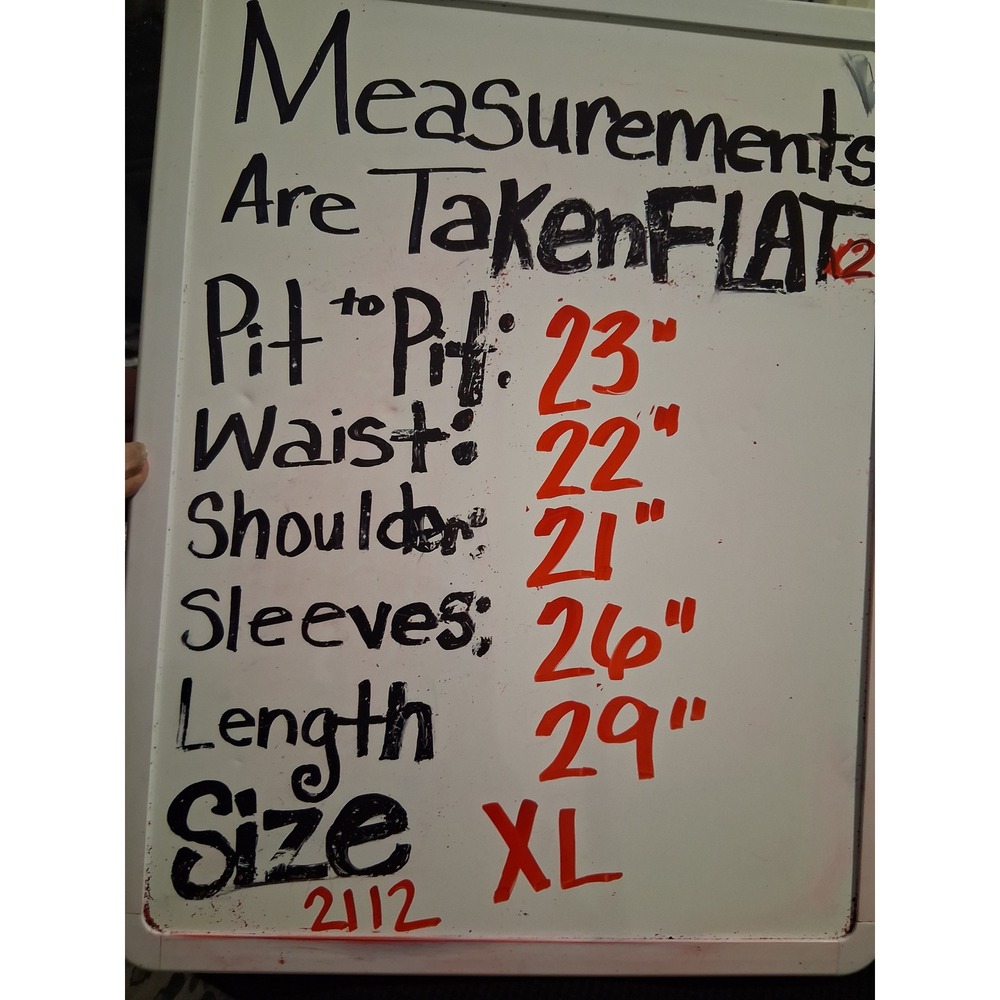 Measurements
Are Taken FLAT x2
Pit to Pit: 23"
Waist: 22"
Shoulder: 21"
Sleeves: 26"
Length 29"
Size XL
2112